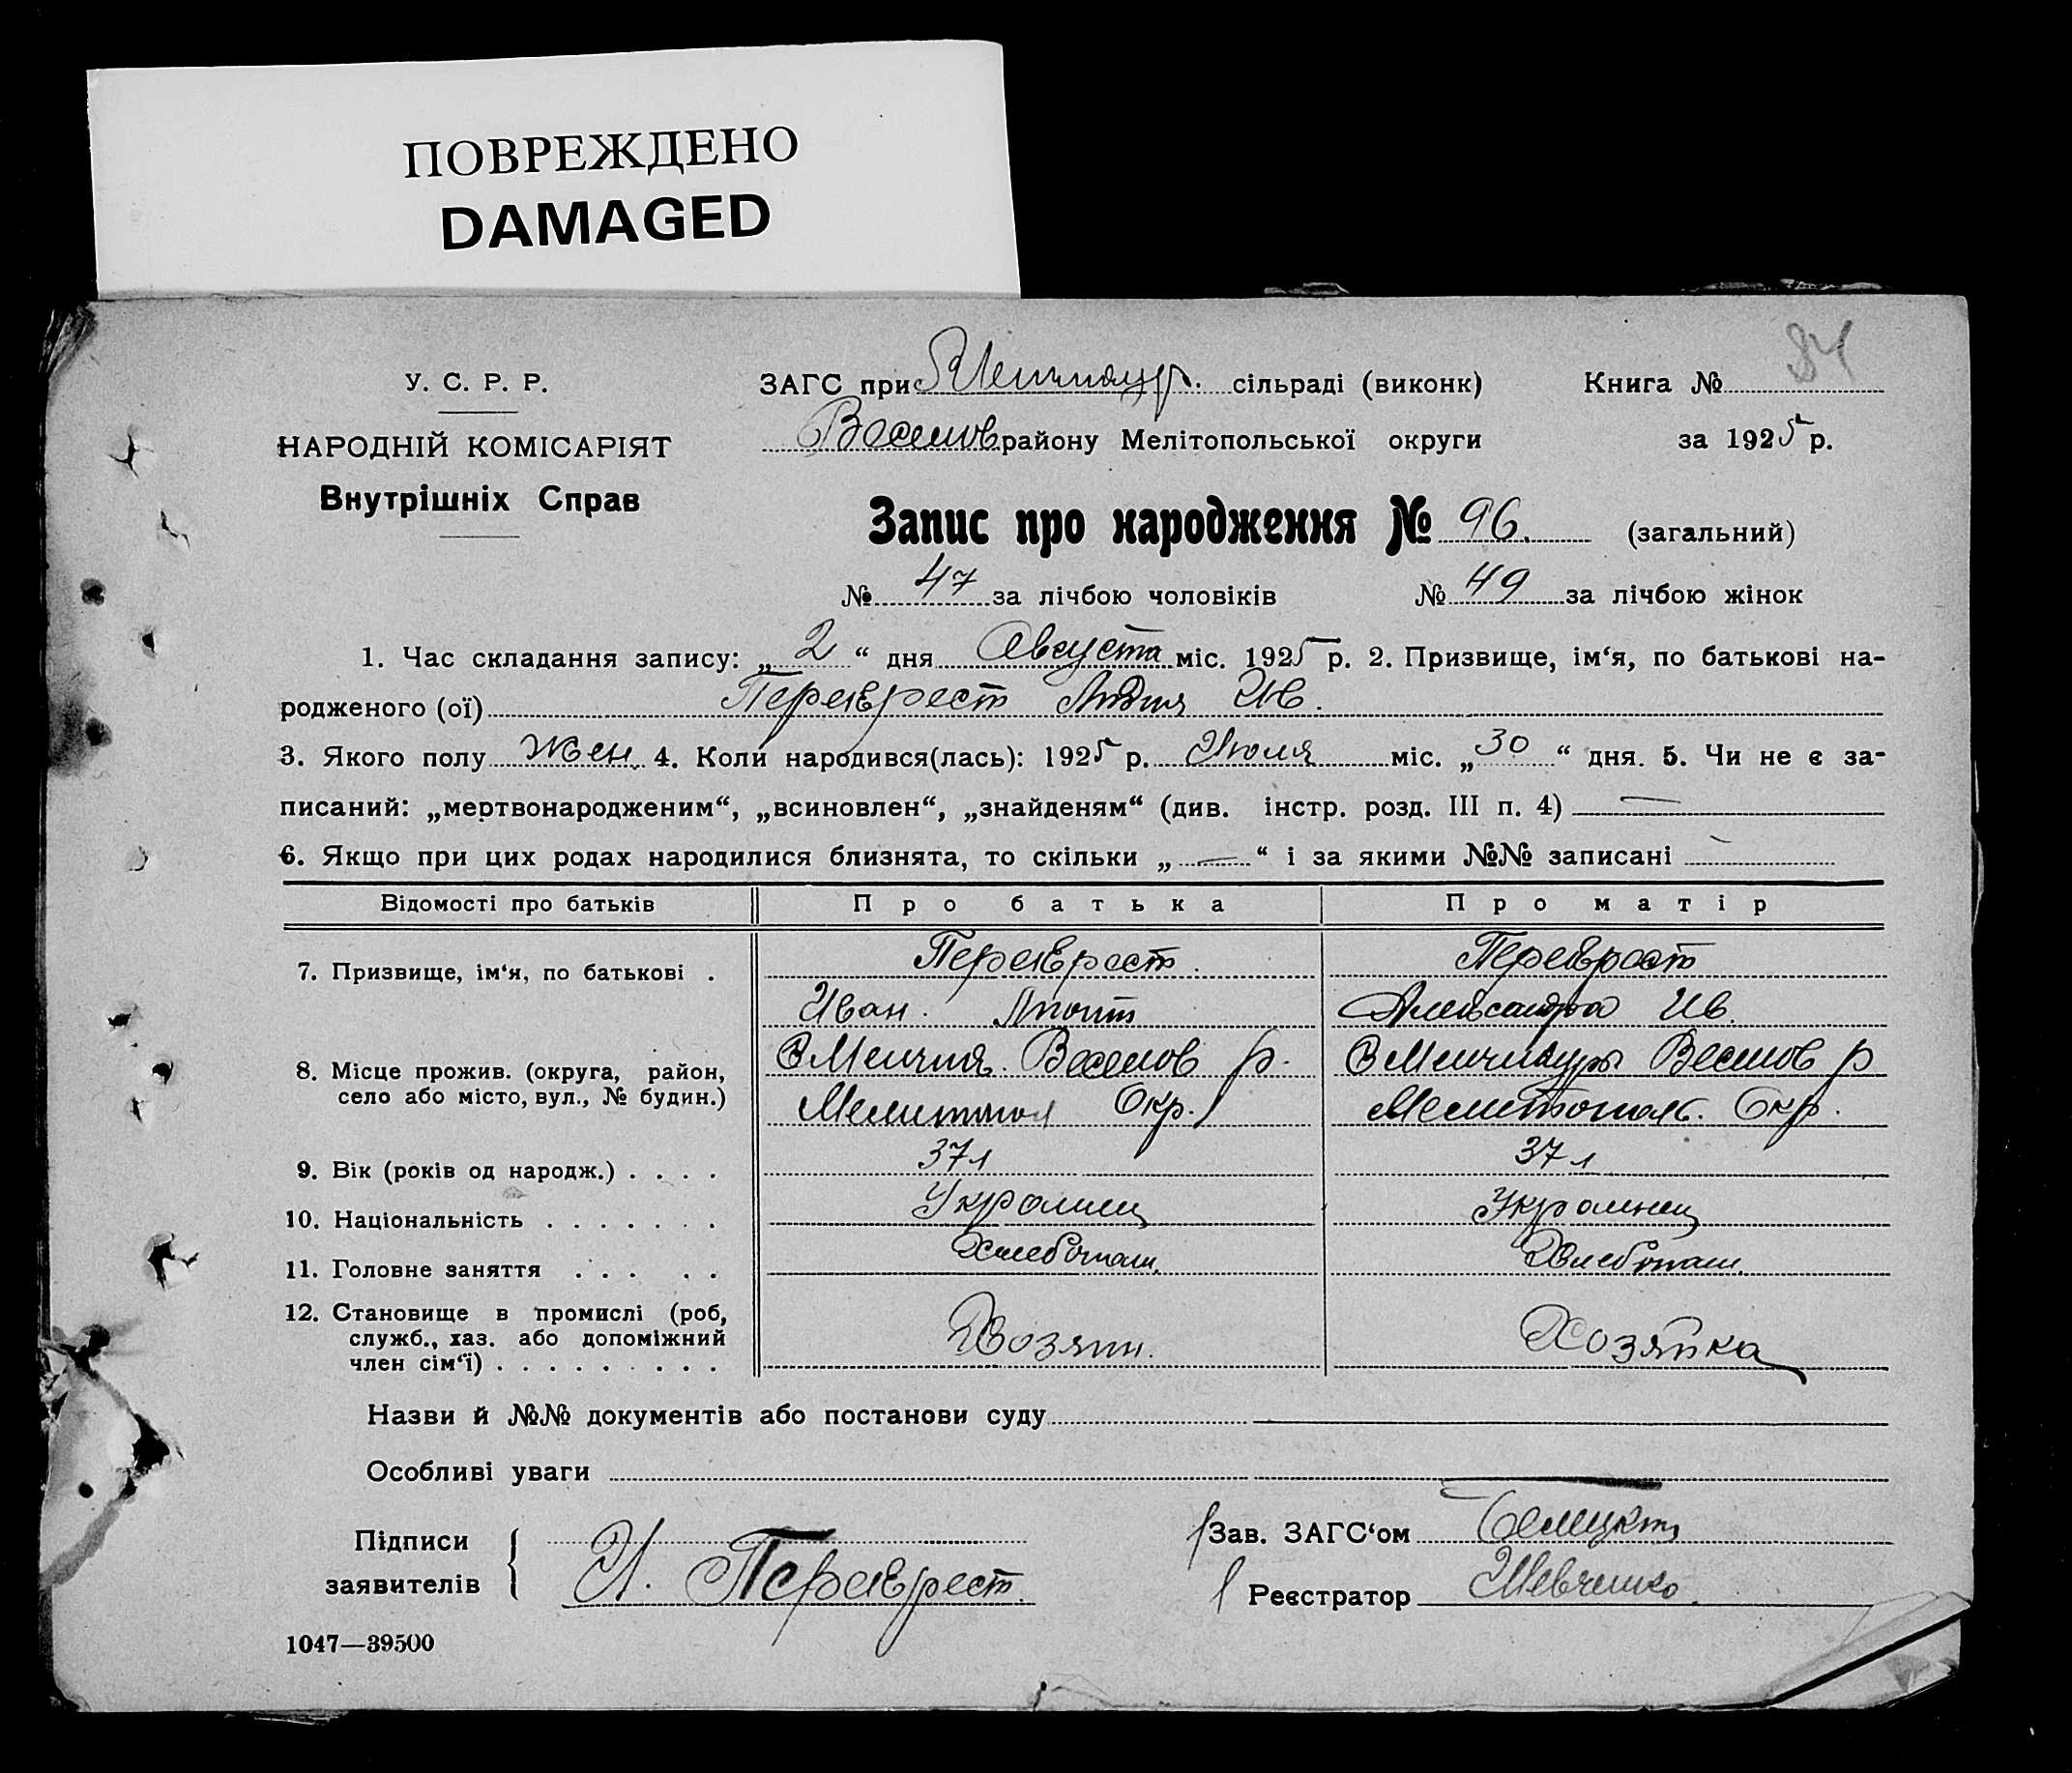 ПОВРЕЖДЕНО
DAMAGED
84
У. С. Р. Р.
ЗАГС при Менчикур. сільраді (виконк)
Книга №
НАРОДНІЙ КОМІСАРІЯТ
Веселов району Мелітопольської округи
за 1925 р.
Внутрішніх Справ
Запис про народження № 96. (загальний)
№ 47 за лічбою чоловіків № 49 за лічбою жінок
1. Час складання запису: „ 2 “ дня Августа міс. 1925 р. 2. Призвище, ім‘я, по батькові на-
родженого (ої) Перехрест Лидия Ив.
3. Якого полу жен. 4. Коли народився(лась): 1925 р. Июля міс. „ 30 “ дня. 5. Чи не є за-
писаний: „мертвонародженим“, „всиновлен“, „знайденям“ (див. інстр. розд. III п. 4) —
6. Якщо при цих родах народилися близнята, то скільки „ — “ і за якими №№ записані —
Відомості про батьків Про батька Про матір
7. Призвище, ім‘я, по батькові . Перехрест. Перехрест
Иван. Александра Ив.
8. Місце прожив. (округа, район, Веселов р. Менчикуры Веселов р
село або місто, вул., № будин.) Мелитопол Окр. Мелитополь. Окр.
9. Вік (років од народж.) . . . . 37 л 37 л
10. Національність . . . . . . . Украинец Украинец
11. Головне заняття . . . . . Хлебопаш. Хлебопаш.
12. Становище в промислі (роб, Хозяин. Хозяйка
служб., хаз. або допоміжний
член сім‘ї) . . . . . . . . .
Назви й №№ документів або постанови суду
Особливі уваги
Підписи
заявителів
И. Перехрест.
Зав. ЗАГС‘ом
Реєстратор Шевченко.
1047—39500